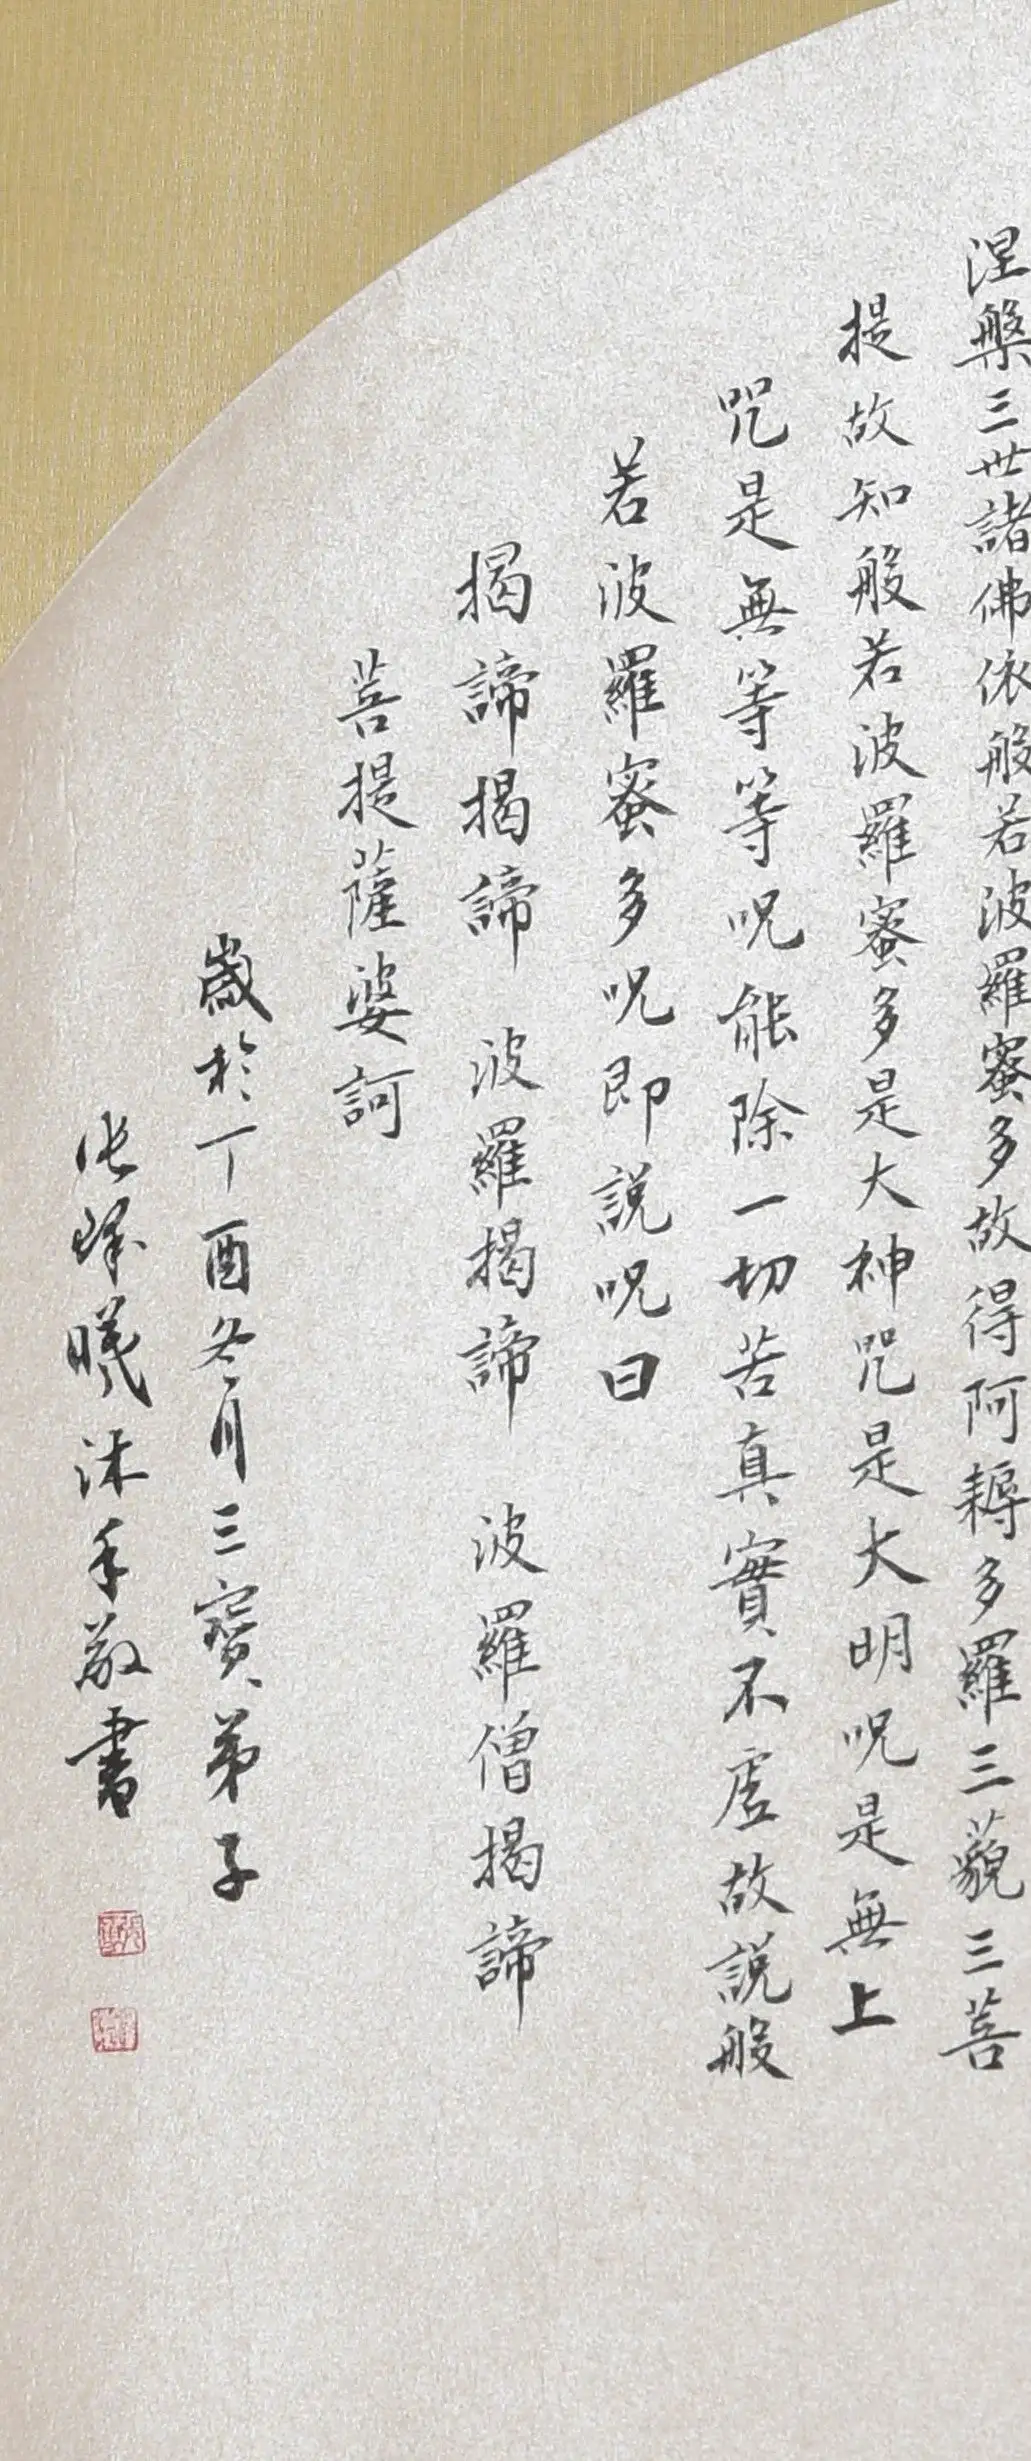 涅槃三世諸佛依般若波羅蜜多故得阿耨多羅三藐三菩
提故知般若波羅蜜多是大神咒是大明呪是無上
咒是無等等呪能除一切苦真實不虛故說般
若波羅蜜多呪即說呪曰
揭諦揭諦 波羅揭諦 波羅僧揭諦
菩提薩婆訶
歲於丁酉冬月三寶弟子
張曦沐手敬書